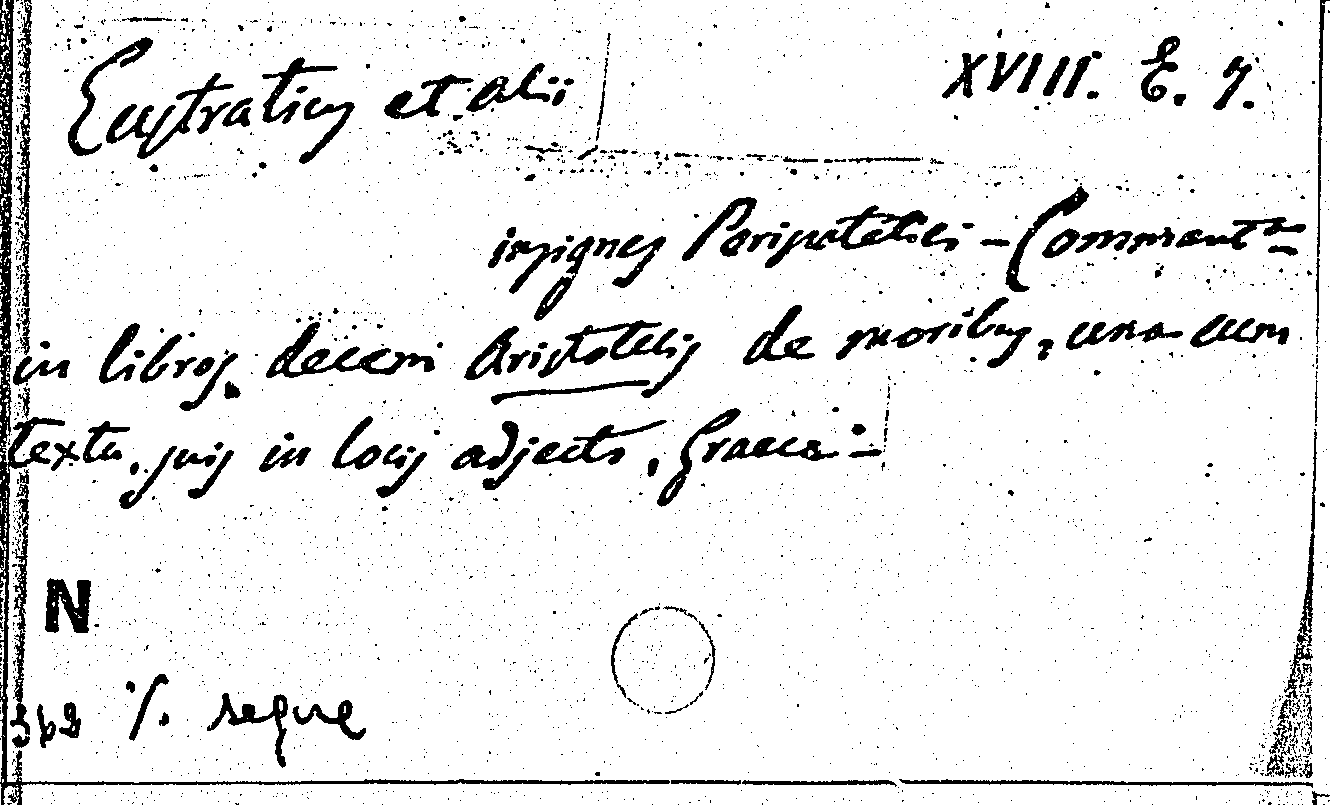 Eustratius et alii XVIII. E. 7.
insignes Peripatetici - Comment
in libros decem Aristotelis de moribus, una cum
textu, suis in locis adjecto, Graece -
N
362 ./. segue